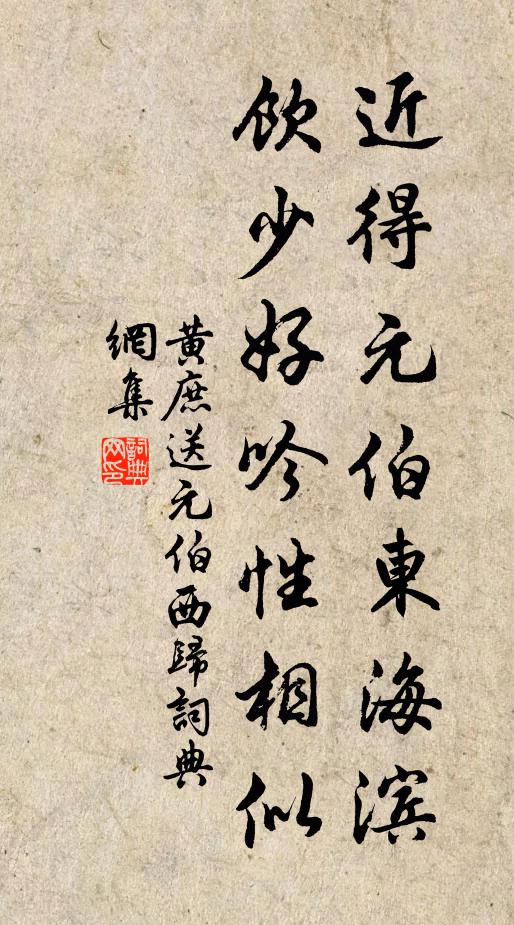 近得元伯東海滨
飲少好吟性相似
黄庶送元伯西歸詞典
網集
詞典網印